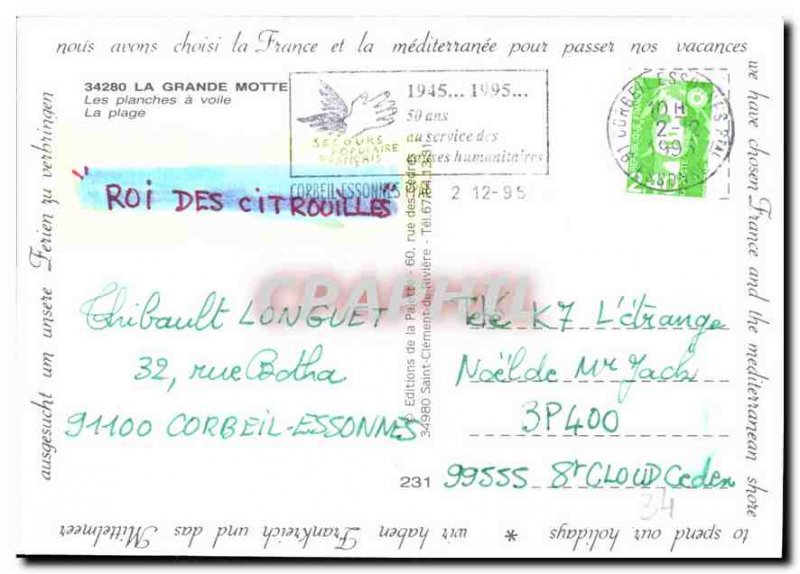 nous avons choisi la France et la méditerranée pour passer nos vacances
we have chosen France and the mediterranean shore
to spend our holidays * wir haben Frankreich und das Mittelmeer
ausgesucht um unsere Ferien zu verbringen
34280 LA GRANDE MOTTE
Les planches à voile
La plage
SECOURS
POPULAIRE
FRANÇAIS
1945... 1995...
50 ans
au service des
causes humanitaires
CORBEIL-ESSONNES PAL 2 12-95
91 CORBEIL ESSONNES PPAL
10 H
2-12
ESSONNE
"ROI DES CITROUILLES"
© Editions de la Palette - 60, rue des Cèdres
34980 Saint-Clément-de-Rivière - Tél.
CPAPHIL
Thibault LONGUET
32, rue Botha
91100 CORBEIL-ESSONNES
Télé K7 L'étrange
Noël de Mr Jack
3P400
231
99555 St CLOUD Cedex
34